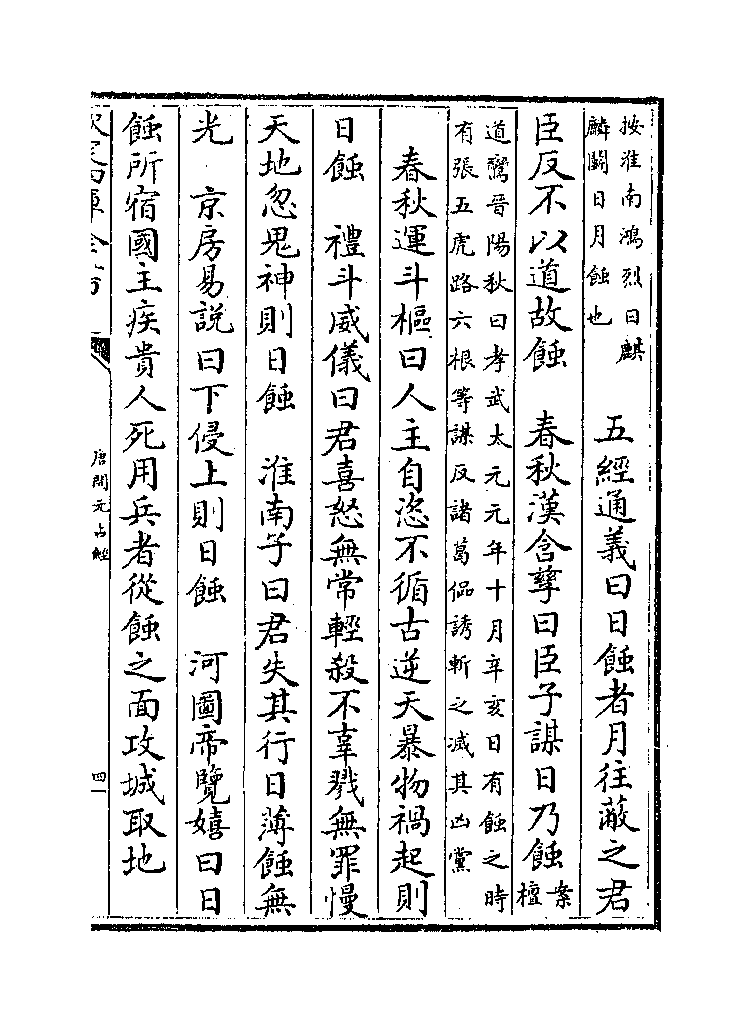 按淮南鴻烈曰麒
麟鬭日月蝕也
五經通義曰日蝕者月往蔽之君
臣反不以道故蝕　春秋漢含孳曰臣子謀日乃蝕
案
檀
道鸞晉陽秋曰孝武太元元年十月辛亥日有蝕之時
有張五虎路六根等謀反諸葛侃誘斬之滅其凶黨
春秋運斗樞曰人主自恣不循古逆天暴物禍起則
日蝕　禮斗威儀曰君喜怒無常輕殺不辜戮無罪慢
天地忽鬼神則日蝕　淮南子曰君失其行日薄蝕無
光　京房易說曰下侵上則日蝕　河圖帝覽嬉曰日
蝕所宿國主疾貴人死用兵者從蝕之面攻城取地
唐開元占經
四